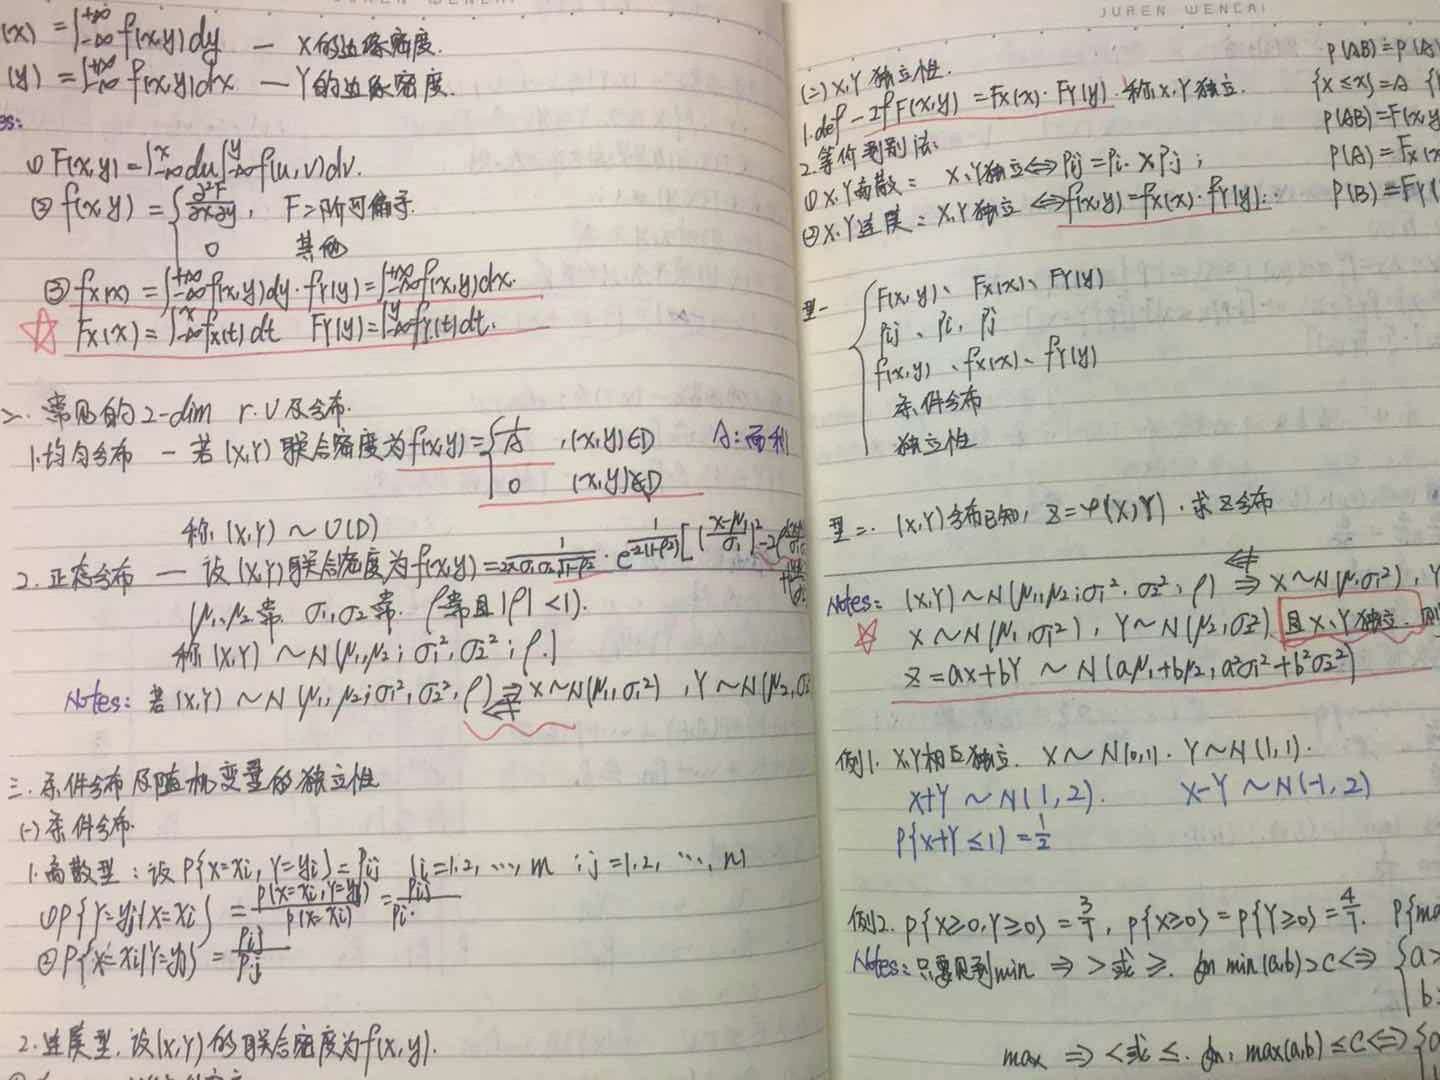 (x) = ∫_{-∞}^{+∞} f(x,y)dy — X的边缘密度.
(y) = ∫_{-∞}^{+∞} f(x,y)dx — Y的边缘密度.
es:
① F(x,y) = ∫_{-∞}^{x} du ∫_{-∞}^{y} f(u,v)dv.
② f(x,y) = { ∂²F/∂x∂y, F二阶可偏导.
0 其他
③ fX(x) = ∫_{-∞}^{+∞} f(x,y)dy. fY(y) = ∫_{-∞}^{+∞} f(x,y)dx.
☆ FX(x) = ∫_{-∞}^{x} fX(t)dt FY(y) = ∫_{-∞}^{y} fY(t)dt.
二. 常见的2-dim r.v及分布.
1.均匀分布 — 若(X,Y)联合密度为f(x,y) = { 1/A , (x,y)∈D A:面积
0 (x,y)∉D
称(X,Y) ~ U(D)
2.正态分布 — 设(X,Y)联合密度为f(x,y) = 1/(2πσ₁σ₂√(1-ρ²)) · e^{-1/(2(1-ρ²)) [((x-μ₁)/σ₁)² - 2ρ
(μ₁,μ₂常, σ₁,σ₂常. ρ常且|ρ|<1).
称(X,Y) ~ N(μ₁,μ₂; σ₁²,σ₂²; ρ.)
Notes: 若(X,Y) ~ N(μ₁,μ₂;σ₁²,σ₂²,ρ) ⇒ ⇍ X~N(μ₁,σ₁²) , Y~N(μ₂,σ₂
三. 条件分布及随机变量的独立性
(一)条件分布.
1.离散型: 设P{X=xi, Y=yi} = Pij (i=1.2, ⋯, m ; j=1.2, ⋯, n)
①P{Y=yj|X=xi} = P(X=xi,Y=yj)/P(X=xi) = Pij/Pi·
②P{X=xi|Y=yj} = Pij/P·j
2.连续型. 设(X,Y)的联合密度为f(x,y).
JUREN WENCAI
(二) X,Y独立性.
1.def — If F(x,y) = FX(x)·FY(y). 称X,Y独立.
2.等价判别法:
①X,Y离散: X,Y独立⇔Pij = Pi· × P·j ;
②X,Y连续: X,Y独立⇔f(x,y)=fX(x)·fY(y).
P(AB) = P(A)
{X≤x} = A {
P(AB) = F(x,y
P(A) = FX(x
P(B) = FY(
型一 { F(x,y)、FX(x)、FY(y)
Pij、Pi·P·j
f(x,y)、fX(x)、fY(y)
条件分布
独立性
型二. (X,Y)分布已知, Z=φ(X,Y). 求Z分布
Notes: (X,Y) ~ N(μ₁,μ₂;σ₁²,σ₂²;ρ) ⇍ ⇒ X~N(μ,σ₁²), Y
☆ X~N(μ₁,σ₁²), Y~N(μ₂,σ₂²) 且X,Y独立. 则
Z=aX+bY ~ N(aμ₁+bμ₂, a²σ₁²+b²σ₂²)
例1. X,Y相互独立. X~N(0,1). Y~N(1,1).
X+Y ~ N(1,2). X-Y ~ N(-1,2)
P{X+Y≤1} = 1/2
例2. P{X≥0,Y≥0} = 3/7, P{X≥0} = P{Y≥0} = 4/7. P{ma
Notes: 只要见到min ⇒ >或≥. 如 min(a,b)>C⇔ { a>
b>
max ⇒ <或≤. 如: max(a,b)≤C⇔ { a